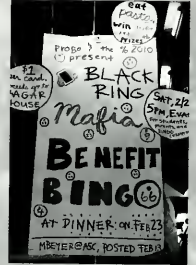 eat
pasta
win
prizes
Probo & the % 2010
present
BLACK
RING
Mafia
$1
per card.
proceeds go to
AGAR
HOUSE
SAT, 2/2
5PM, Evans
for students,
parents, and
BENEFIT
BINGO
66
AT DINNER: ON FEB 23
MBEYER@ASC, POSTED FEB 13